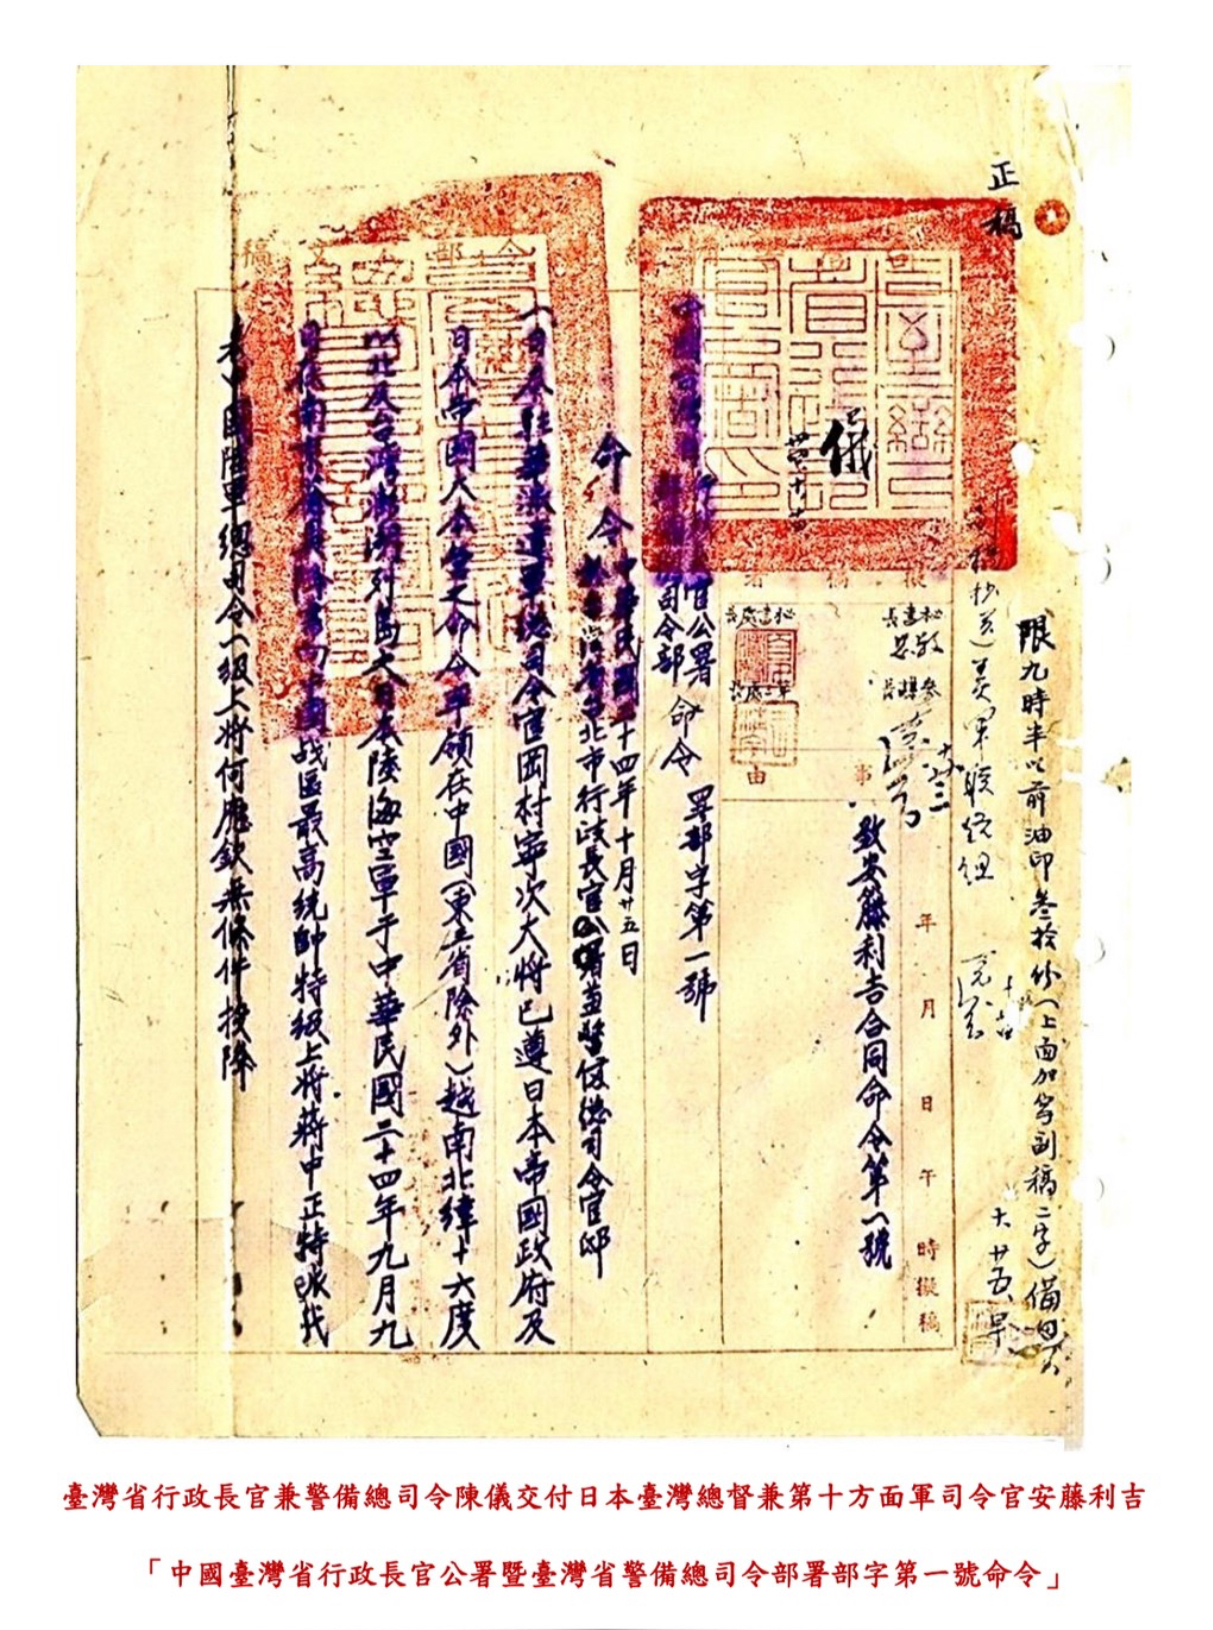 正稿
限九時半以前油印叁拾份(上面加寫副稿二字)備用
十廿五早
抄送美軍聯絡組
儀
秘書長
秘書處長
年 月 日 午 時擬稿
事由
致安藤利吉合同命令第一號
官公署
司令部
命令 署部字第一號
命令
中華民國三十四年十月廿五日
北市行政長官公署兼警備總司令官邸
一日本駐華派遣軍總司令官岡村寧次大將已遵日本帝國政府及
日本帝國大本營之命令率領在中國(東三省除外)越南北緯十六度
以北及台灣澎湖列島之日本陸海空軍于中華民國三十四年九月九
日在南京簽具降書向中國战區最高統帥特級上將蔣中正特派代
表中國陸軍總司令一級上將何應欽無條件投降
臺灣省行政長官兼警備總司令陳儀交付日本臺灣總督兼第十方面軍司令官安藤利吉
「中國臺灣省行政長官公署暨臺灣省警備總司令部署部字第一號命令」